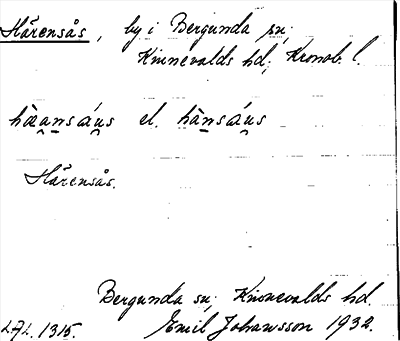 Härensås, by i Bergunda sn;
Kinnevalds hd; Kronob. l.
hàa̯nsáu̯s el. hànsáu̯s
Härensås.
Bergunda sn; Kinnevalds hd.
L.A.L. 1315. Emil Johansson 1932.